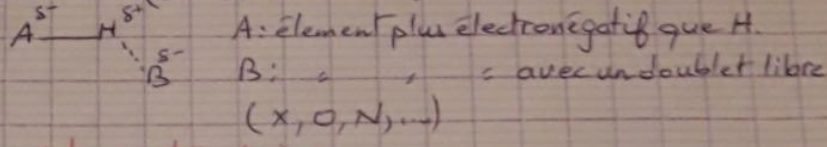 A^δ- — H^δ+ A: élement plus électronégatif que H.
B^δ- B: " " " avec un doublet libre
(X, O, N, ...)